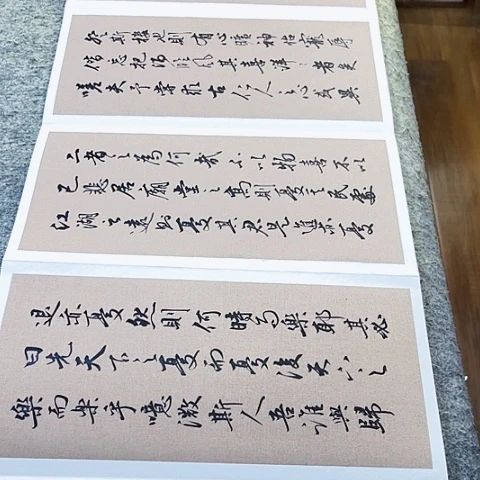 登斯樓也則有心曠神怡寵辱
偕忘把酒臨風其喜洋洋者矣
嗟夫予嘗求古仁人之心或異
二者之為何哉不以物喜不以
己悲居廟堂之高則憂其民處
江湖之遠則憂其君是進亦憂
退亦憂然則何時而樂耶其必
曰先天下之憂而憂後天下之
樂而樂乎噫微斯人吾誰與歸